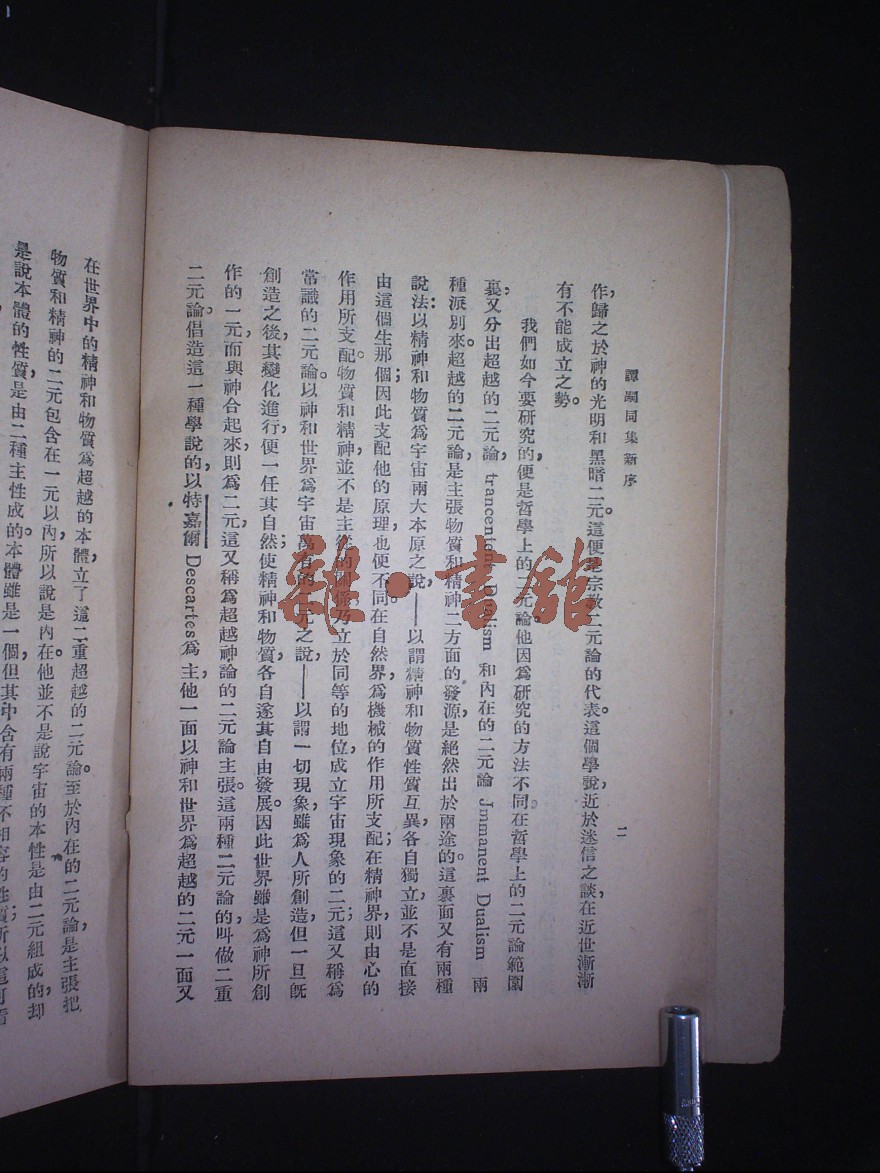 譚嗣同集新序
二
作，歸之於神的光明和黑暗二元。這便是宗教二元論的代表。這個學說，近於迷信之談，在近世漸漸
有不能成立之勢。
我們如今要研究的，便是哲學上的二元論。他因爲研究的方法不同，在哲學上的二元論範圍
裏，又分出超越的二元論，trancentent Dualism 和內在的二元論 Jmmanent Dualism 兩
種派別來。超越的二元論，是主張物質和精神二方面的發源，是絕然出於兩途的。這裏面又有兩種
說法：以精神和物質爲宇宙兩大本原之說，——以謂精神和物質性質互異，各自獨立，並不是直接
由這個生那個；因此支配他的原理，也便不同。在自然界，爲機械的作用所支配；在精神界，則由心的
作用所支配。物質和精神，並不是主從的關係，乃立於同等的地位，成立宇宙現象的二元；這又稱爲
常識的二元論。以神和世界爲宇宙萬有的二元之說，——以謂一切現象，雖爲人所創造，但一旦旣
創造之後，其變化進行，便一任其自然，使精神和物質，各自遂其自由發展。因此世界雖是爲神所創
作的一元，而與神合起來，則爲二元，這又稱爲超越神論的二元論主張。這兩種二元論的，叫做二重
二元論。倡造這一種學說的，以特嘉爾 Descartes 爲主，他一面以神和世界爲超越的二元，一面又
在世界中的精神和物質爲超越的本體，立了這二重超越的二元論。至於內在的二元論，是主張把
物質和精神的二元包含在一元以內，所以說是內在。他並不是說宇宙的本性是由二元組成的，却
是說本體的性質，是由二種主性成的。本體雖是一個，但其中含有兩種不相容的性質；所以這
雜·書館